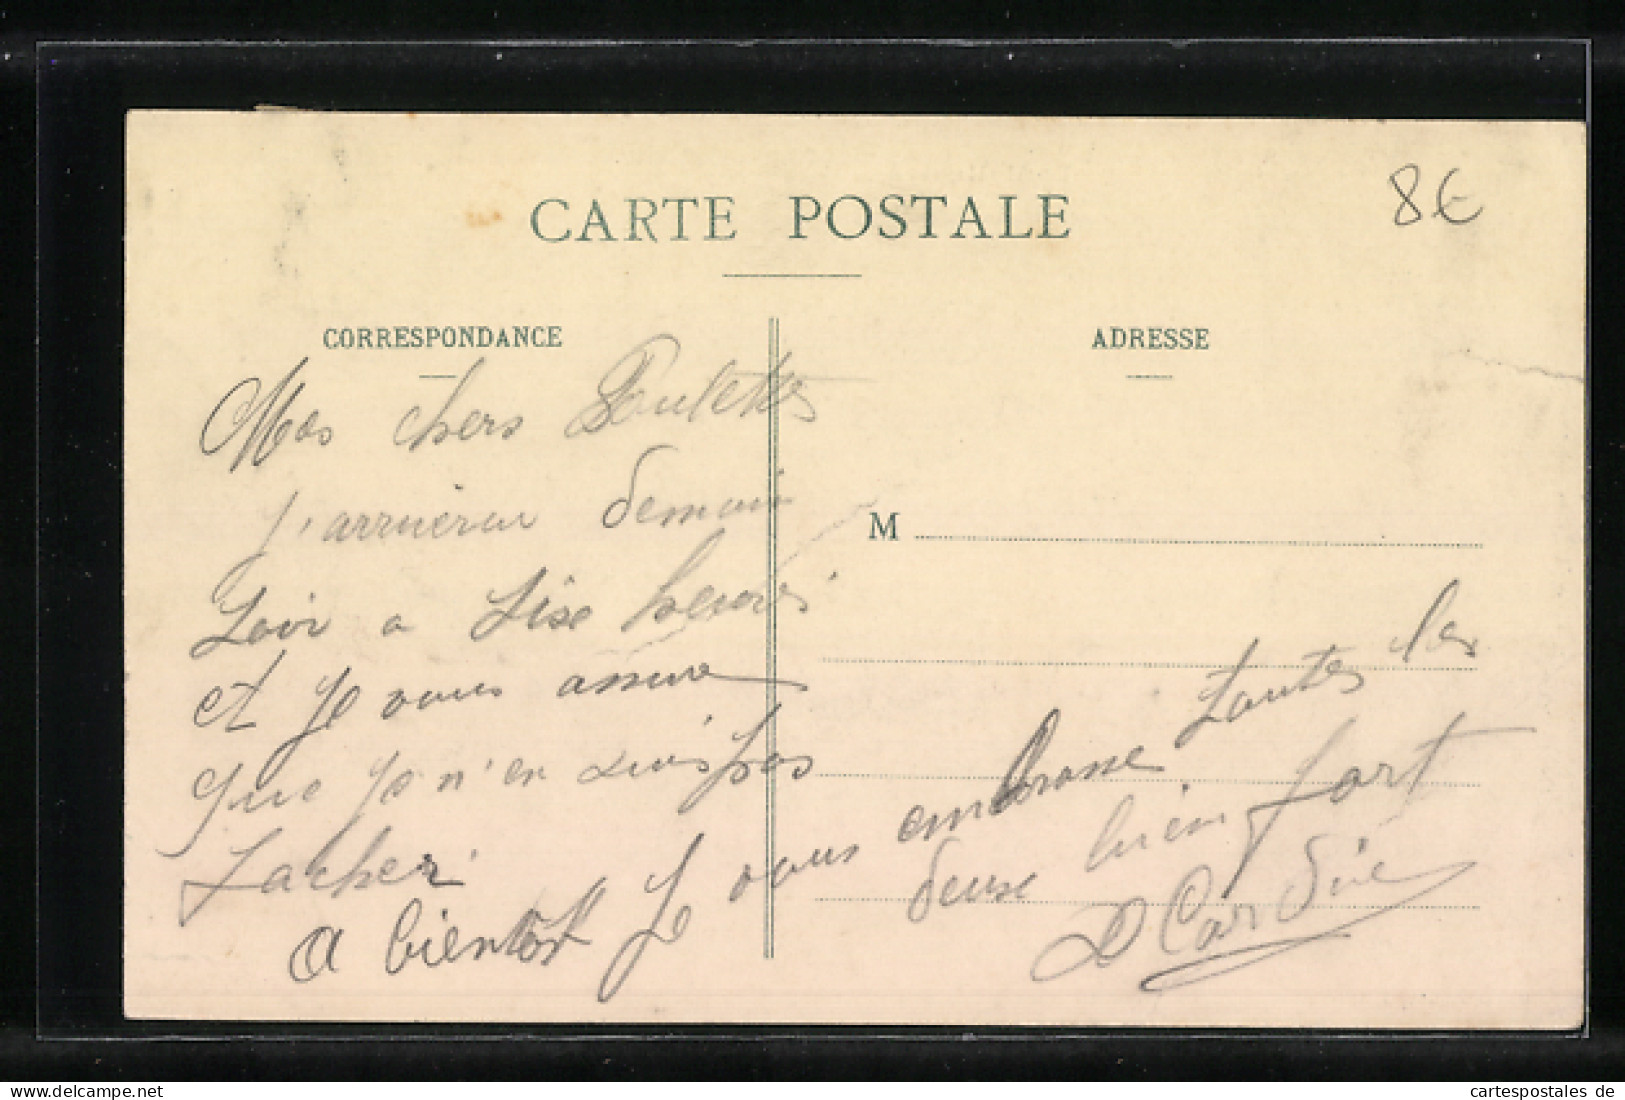 CARTE POSTALE
8€
CORRESPONDANCE
ADRESSE
Mes chers Poulettes
j'arriverai demain
Soir a Sise heures
et je vous assure
que je n'en suis pas
facher
a bientost je vous embrasse toutes les
deuse bien fort
D Cardie
M
delcampe.net
cartespostales de